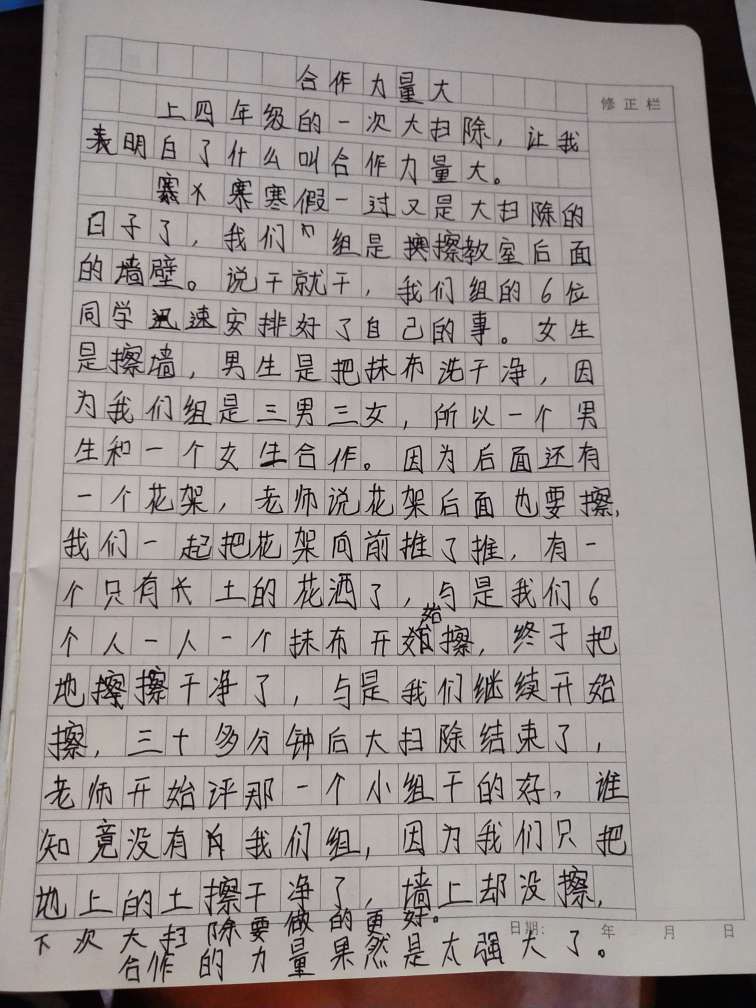 合作力量大
修正栏
上四年级的一次大扫除，让我
表明白了什么叫合作力量大。
寒假一过又是大扫除的
日子了，我们 组是擦教室后面
的墙壁。说干就干，我们组的6位
同学迅速安排好了自己的事。女生
是擦墙，男生是把抹布洗干净，因
为我们组是三男三女，所以一个男
生和一个女生合作。因为后面还有
一个花架，老师说花架后面也要擦，
我们一起把花架向前推了推，有一
个只有长土的花洒了，与是我们6
个人一人一个抹布开始擦，终于把
地擦擦干净了，与是我们继续开始
擦，三十多分钟后大扫除结束了，
老师开始评那一个小组干的好，谁
知竟没有我们组，因为我们只把
地上的土擦干净了，墙上却没擦，
下次大扫除要做的更好。
日期： 年 月 日
合作的力量果然是太强大了。